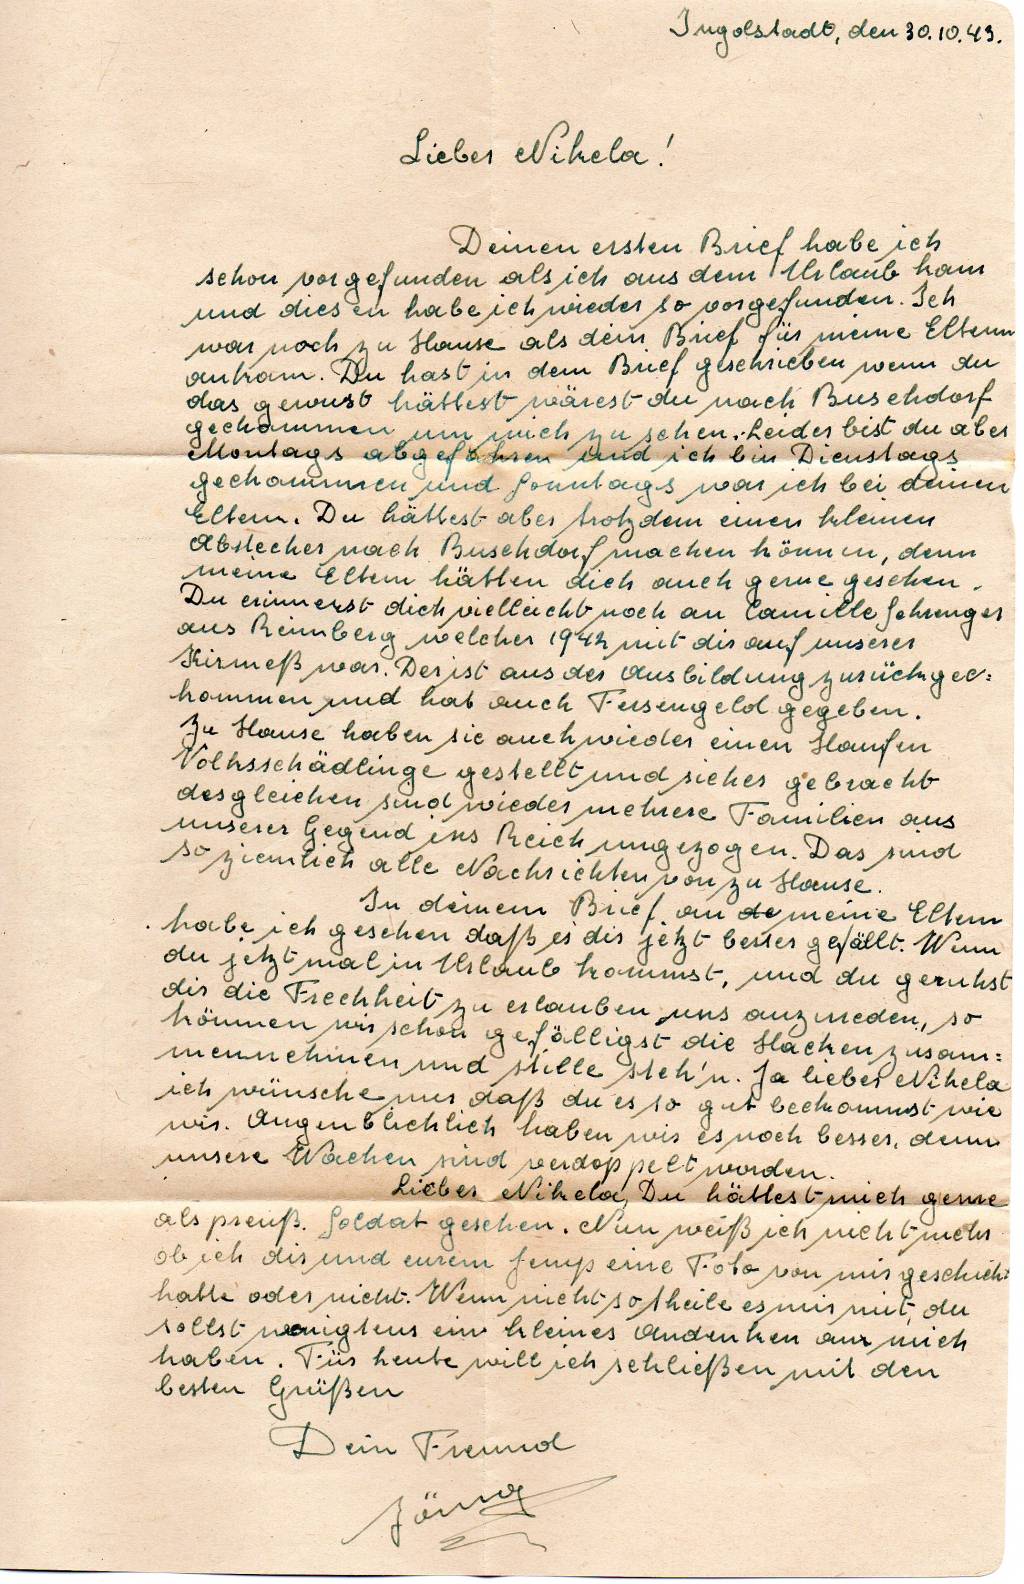 Ingolstadt, den 30.10.43.
Lieber Nikela!
Deinen ersten Brief habe ich
schon vorgefunden als ich aus dem Urlaub kam
und diesen habe ich wieder so vorgefunden. Ich
war noch zu Hause als dein Brief für meine Eltern
ankam. Du hast in dem Brief geschrieben wenn du
das gewust hättest wärest du nach Buschdorf
gekommen um mich zu sehen. Leider bist du aber
Montags abgefahren und ich bin Dienstags
gekommen und Sonntags war ich bei deinen
Eltern. Du hättest aber trotzdem einen kleinen
Abstecher nach Buschdorf machen können, denn
meine Eltern hätten dich auch gerne gesehen.
Du erinnerst dich vielleicht noch an Camille Sehrenger
aus Reimberg welcher 1942 mit dir auf unserer
Kirmeß war. Der ist aus der Ausbildung zurückge=
kommen und hat auch Fersengeld gegeben.
Zu Hause haben sie auch wieder einen Haufen
Volksschädlinge gestellt und sicher gebracht
desgleichen sind wieder mehrere Familien aus
unserer Gegend ins Reich umgezogen. Das sind
so ziemlich alle Nachrichten von zu Hause.
In deinem Brief an de meine Eltern
habe ich gesehen daß es dir jetzt besser gefällt. Wenn
du jetzt mal in Urlaub kommst, und du geruhst
dir die Frechheit zu erlauben uns anzureden, so
können wir schon gefälligst die Hacken zusam=
mennehmen und stille steh'n. Ja lieber Nikela
ich wünsche nur daß du es so gut bekommst wie
wir. Augenblicklich haben wir es noch besser, denn
unsere Wachen sind verdoppelt worden.
Lieber Nikela, Du hättest mich gerne
als preuß. Soldat gesehen. Nun weiß ich nicht mehr
ob ich dir und eurem Jemp eine Foto von mir geschickt
hatte oder nicht. Wenn nicht so theile es mir mit, du
sollst wenigtens ein kleines Andenken an mich
haben. Für heute will ich schließen mit den
besten Grüßen
Dein Freund